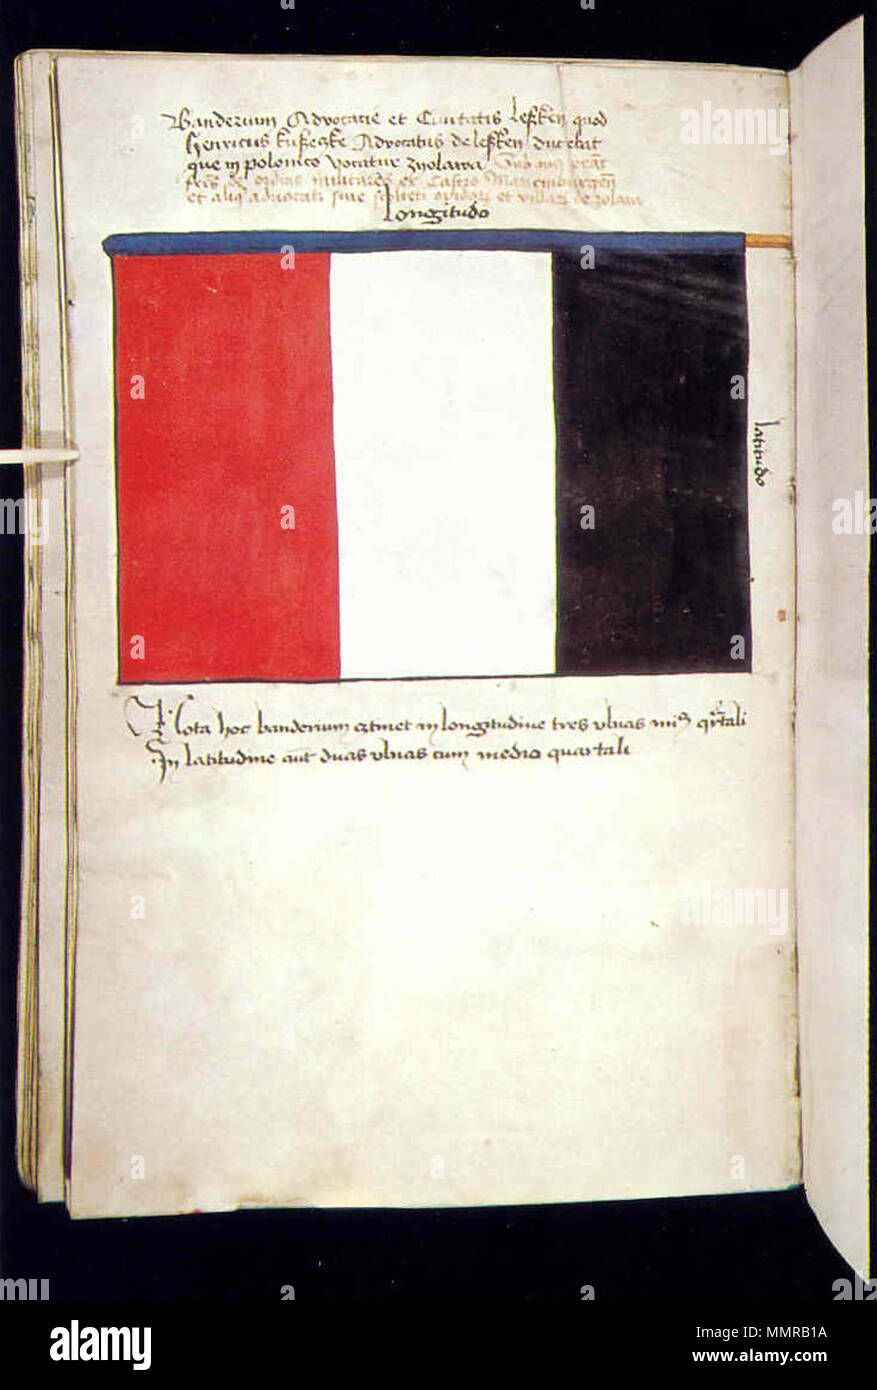 Banderium Advocacie et Civitatis Lesken quod
Henricus kuszeczke Advocatus de lesken ducebat
que in polonico vocatur zyolawa Sub quo erant
fratres et ordinis militares ex Castro Marienburgen
et aliqui advocati sive et villani de zolawa
Longitudo
latitudo
Nota hoc banderium continet in longitudine tres ulnas minus quartali
In latitudine autem duas ulnas cum medio quartali
alamy
Image ID: MMRB1A
www.alamy.com